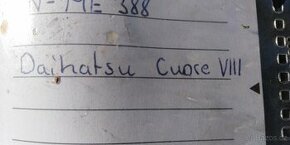 N-ME 388
Daihatsu Cuore VIII